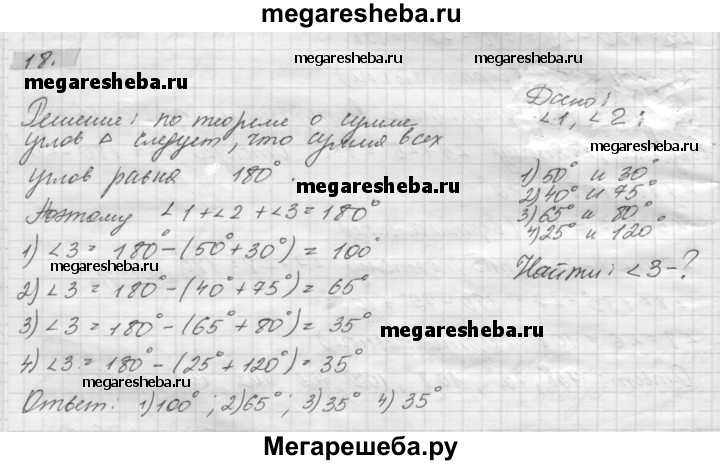 megaresheba.ru
18.
megaresheba.ru
megaresheba.ru
Решение: по теореме о сумме
углов Δ следует, что сумма всех
углов равна 180°.
Поэтому ∠1+∠2+∠3=180°
1) ∠3 = 180°-(50°+30°) = 100°
megaresheba.ru
2) ∠3 = 180°-(40°+75°) = 65°
3) ∠3 = 180°-(65°+80°) = 35°
4) ∠3 = 180°-(25°+120°) = 35°
megaresheba.ru
Ответ: 1)100°; 2)65°; 3)35° 4)35°
Дано:
∠1, ∠2:
megaresheba.ru
1) 50° и 30°
2) 40° и 75°
3) 65° и 80°
4) 25° и 120°
Найти: ∠3-?
megaresheba.ru
megaresheba.ru
Мегарешеба.ру